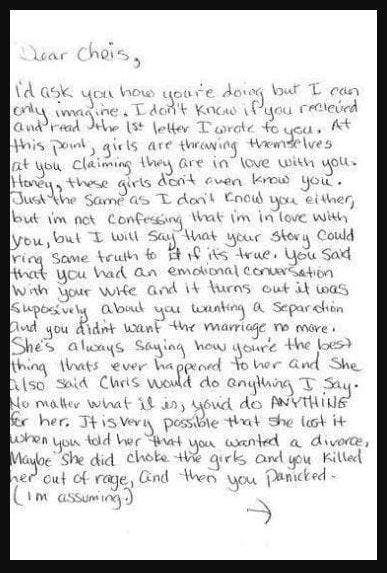 Dear Chris,
i'd ask you how you're doing but I can
only imagine. I don't know if you recieved
and read the 1st letter I wrote to you. At
this point, girls are throwing themselves
at you claiming they are in love with you.
Honey, these girls don't even know you.
Just the same as I don't know you either,
but im not confessing that im in love with
you, but I will say that your story could
ring some truth to it if its true. you said
that you had an emotional conversation
with your wife and it turns out it was
suposively about you wanting a separation
and you didnt want the marriage no more.
She's always saying how you're the best
thing thats ever happened to her and she
also said Chris would do anything I say.
No matter what it is, you'd do ANYTHING
for her. It is very possible that she lost it
when you told her that you wanted a divorce,
Maybe she did choke the girls and you killed
her out of rage, and then you panicked.
(im assuming.)
→